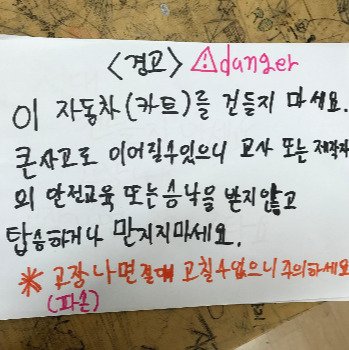 <경고> ⚠danger
이 자동차(카트)를 건들지 마세요.
큰사고로 이어질수있으니 교사 또는 제작자
외 안전교육 또는 승낙을 받지않고
탑승하거나 만지지마세요.
* 고장나면 절때 고칠수없으니 주의하세요
(파손)